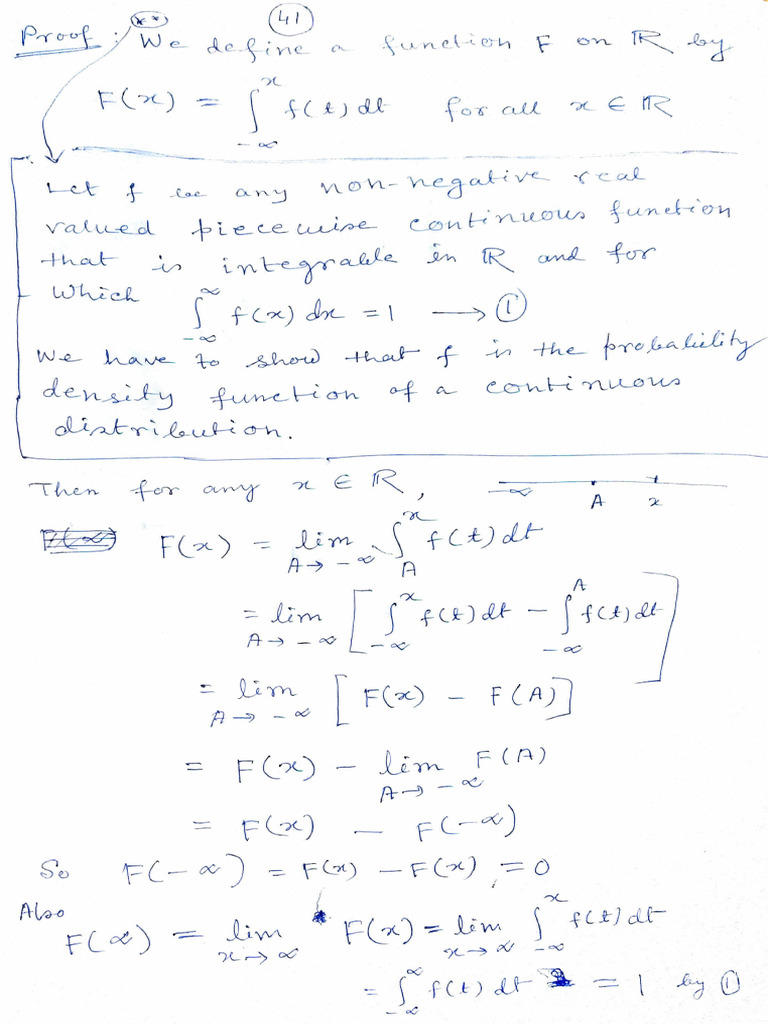 (41)
Proof : (**) We define a function F on ℝ by
F(x) = ∫_{-∞}^{x} f(t) dt for all x ∈ ℝ
Let f be any non-negative real
valued piecewise continuous function
that is integrable in ℝ and for
which ∫_{-∞}^{∞} f(x) dx = 1 → ①
We have to show that f is the probability
density function of a continuous
distribution.
Then for any x ∈ ℝ, -∞ A x
F(x) = lim_{A→-∞} ∫_{A}^{x} f(t) dt
= lim_{A→-∞} [ ∫_{-∞}^{x} f(t) dt - ∫_{-∞}^{A} f(t) dt ]
= lim_{A→-∞} [ F(x) - F(A) ]
= F(x) - lim_{A→-∞} F(A)
= F(x) - F(-∞)
So F(-∞) = F(x) - F(x) = 0
Also
F(∞) = lim_{x→∞} F(x) = lim_{x→∞} ∫_{-∞}^{x} f(t) dt
= ∫_{-∞}^{∞} f(t) dt = 1 by ①